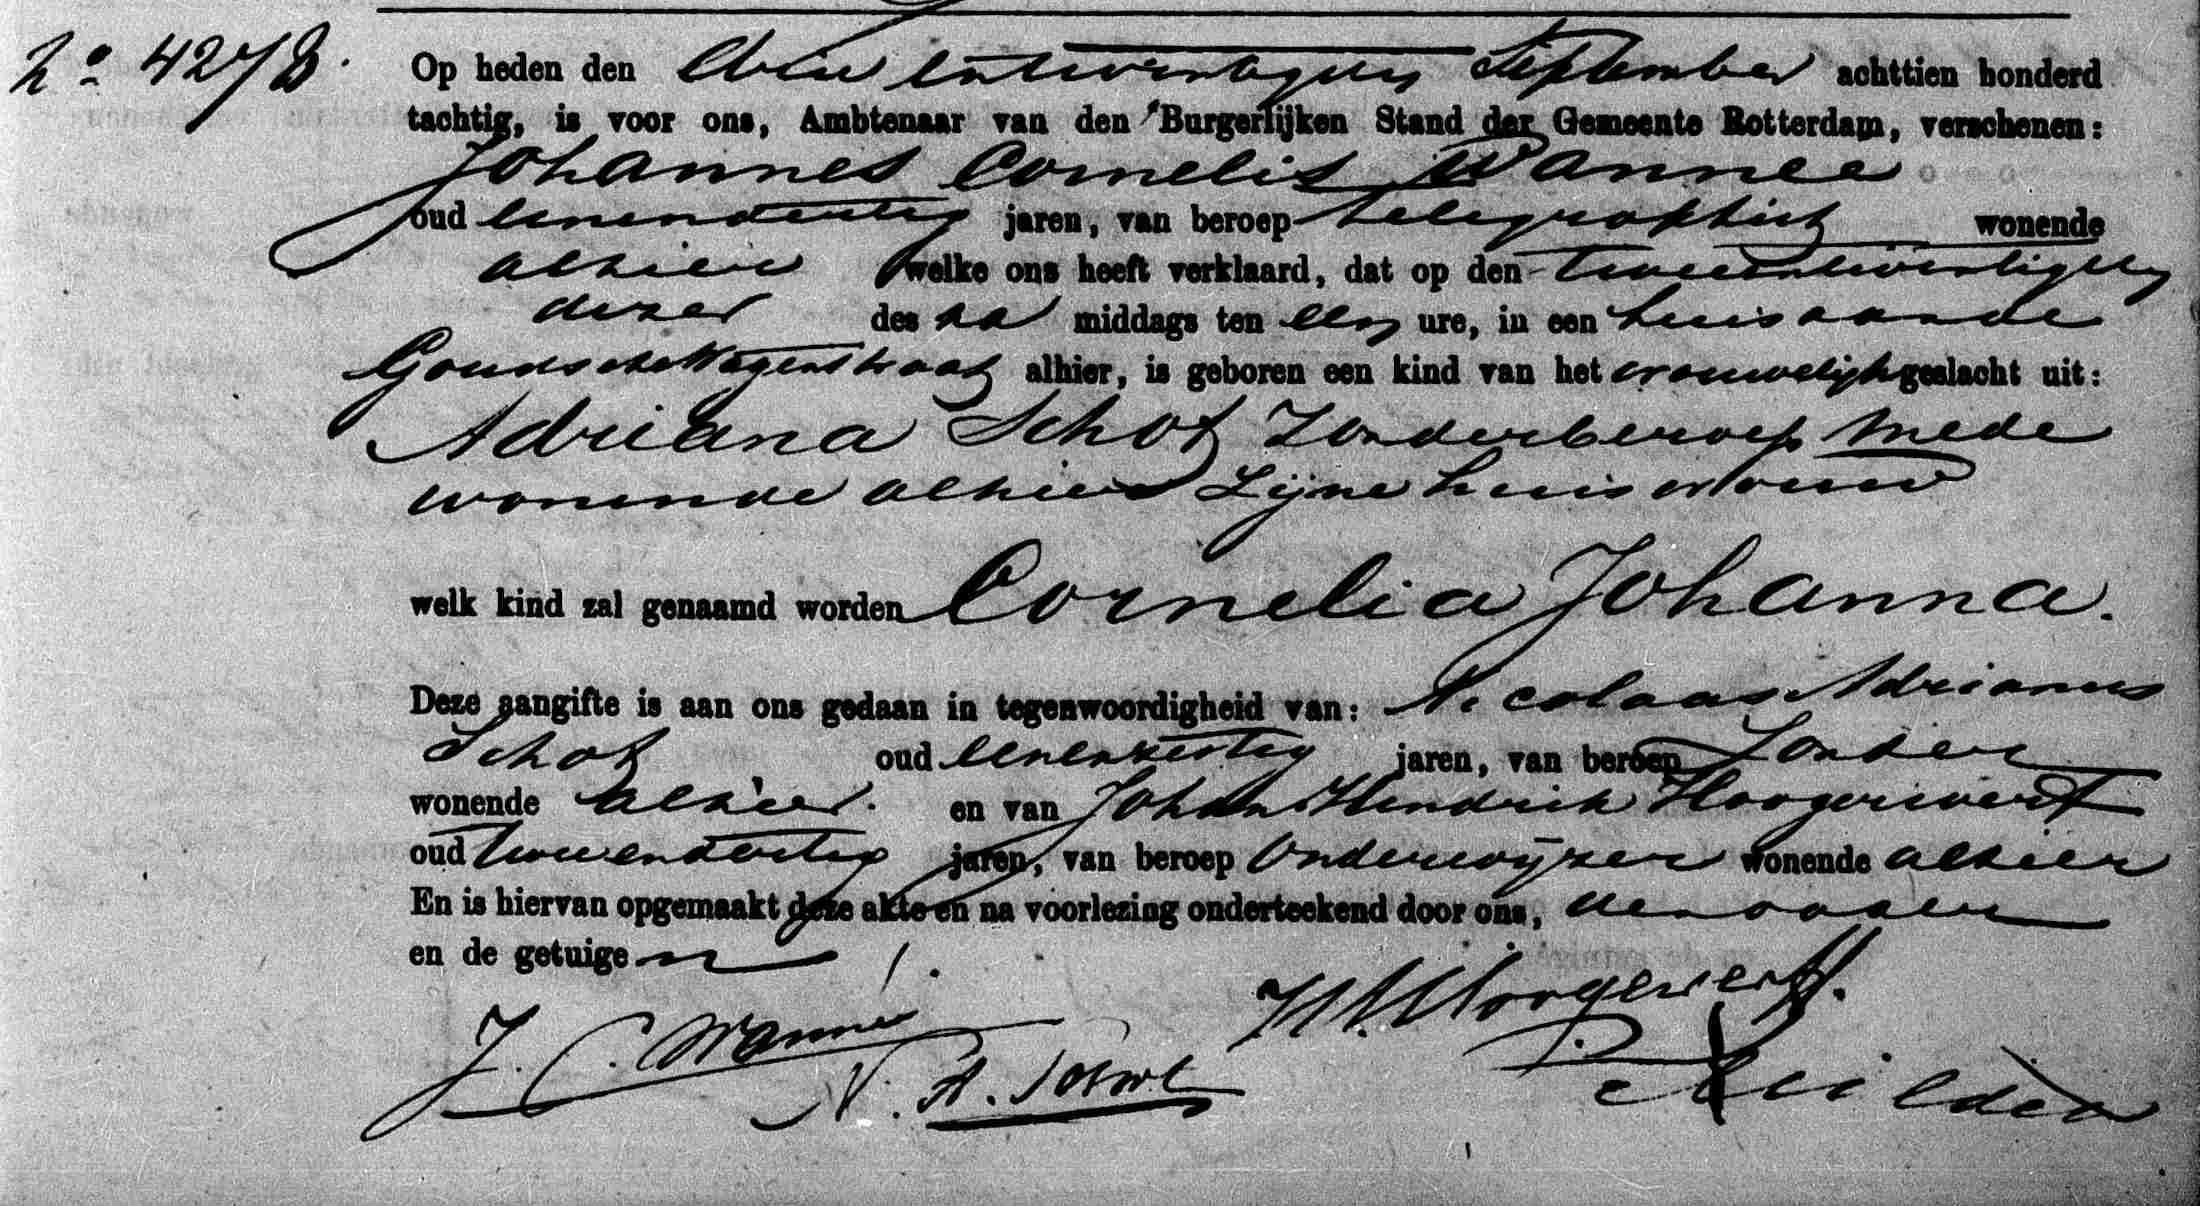 No 4278. Op heden den drie en twintigsten September achttien honderd
tachtig, is voor ons, Ambtenaar van den Burgerlijken Stand der Gemeente Rotterdam, verschenen:
Johannes Cornelis Wannee
oud eenendertig jaren, van beroep telegraphist wonende
alhier welke ons heeft verklaard, dat op den tweeentwintigsten
dezer des na middags ten een ure, in een huis aan de
Goudsche Wagenstraat alhier, is geboren een kind van het vrouwelijk geslacht uit:
Adriana Schot Zonder beroep mede
wonende alhier Zijne huisvrouw
welk kind zal genaamd worden Cornelia Johanna.
Deze aangifte is aan ons gedaan in tegenwoordigheid van: Nicolaas Adrianus
Schot oud eenenzestig jaren, van beroep Zonder
wonende alhier. en van Johan Hendrik Hoogerwerf
oud tweeendertig jaren, van beroep Onderwijzer wonende alhier
En is hiervan opgemaakt deze akte en na voorlezing onderteekend door ons, den vader
en de getuigen
J. C. Wannee
N. A. Schot
Hoogerwerff.